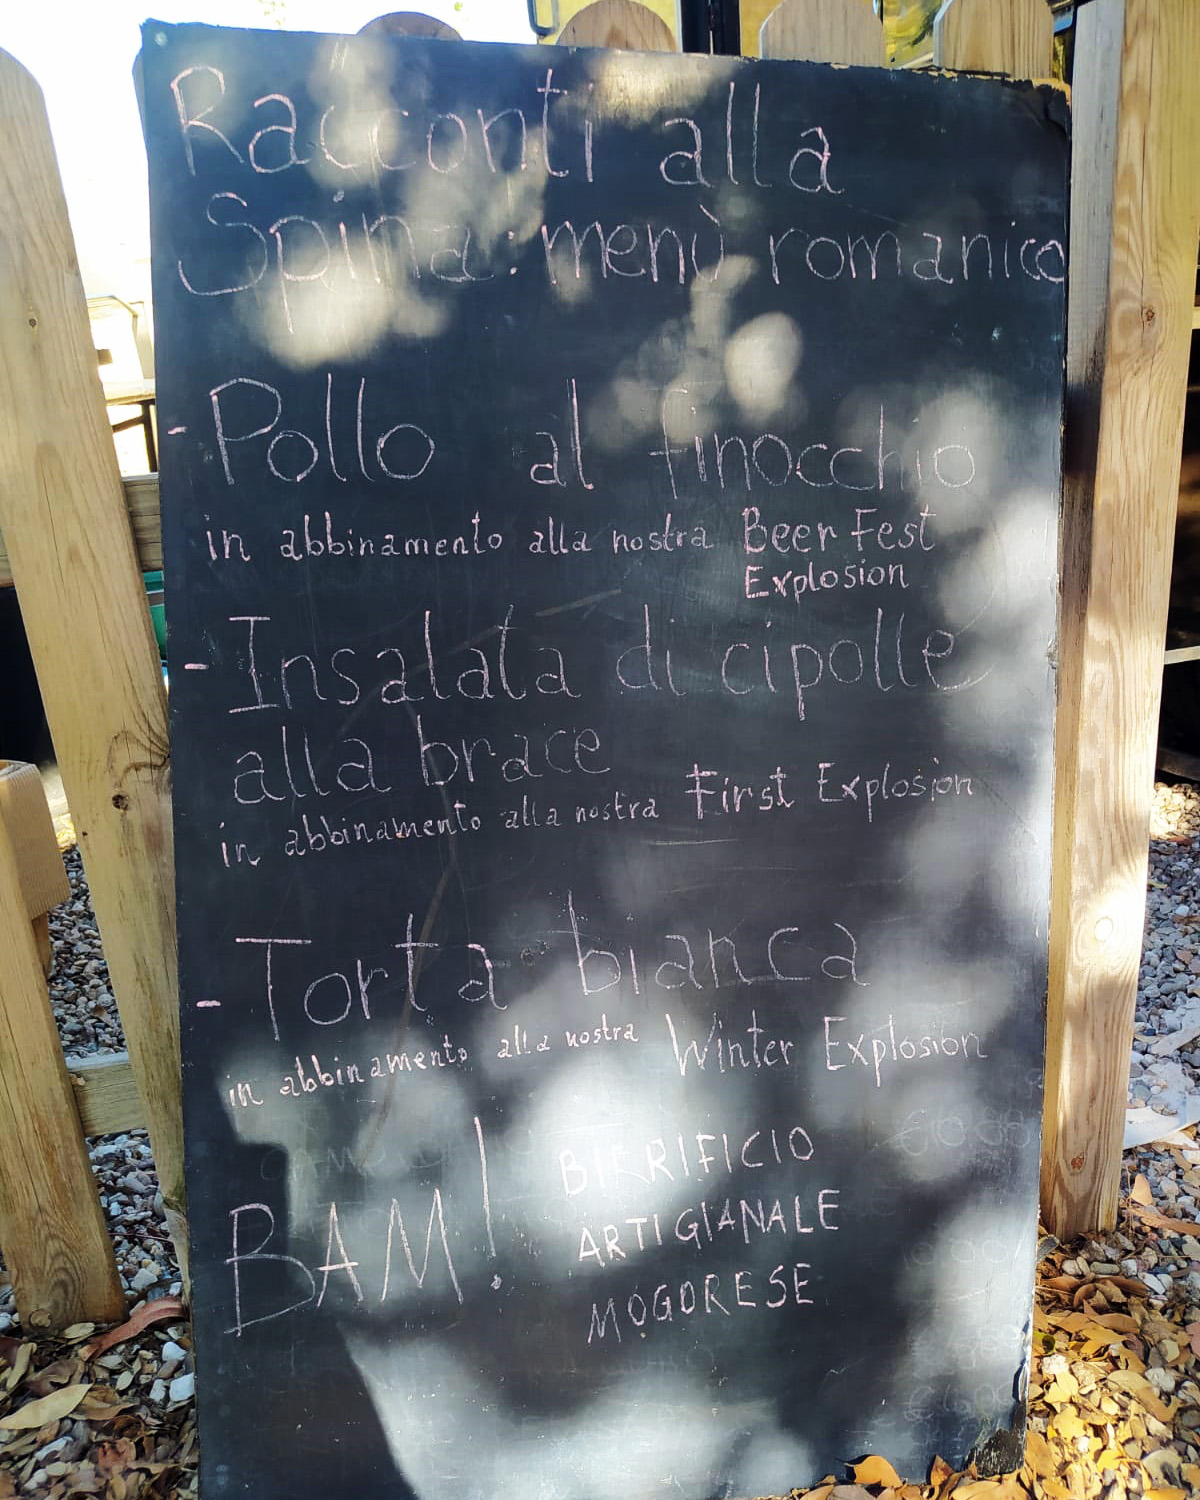 Racconti alla
Spina: menù romanico
- Pollo al finocchio
in abbinamento alla nostra Beer Fest
Explosion
- Insalata di cipolle
alla brace
in abbinamento alla nostra First Explosion
- Torta bianca
in abbinamento alla nostra Winter Explosion
BAM!
BIRRIFICIO
ARTIGIANALE
MOGORESE